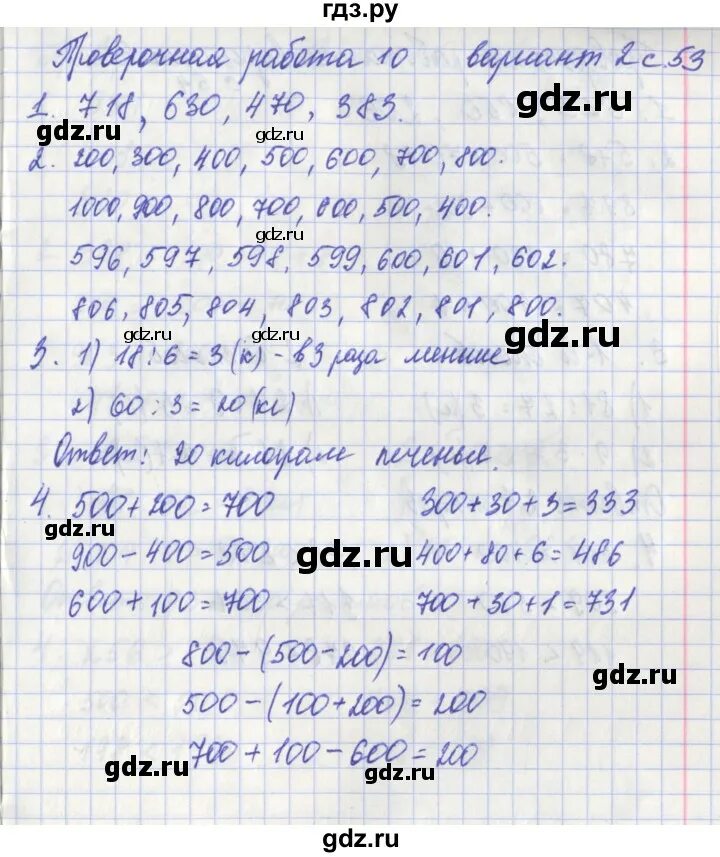 гдз.ру
Проверочная работа 10 вариант 2 с.53
1. 718, 630, 470, 383.
gdz.ru
gdz.ru
gdz.ru
2. 200, 300, 400, 500, 600, 700, 800.
1000, 900, 800, 700, 600, 500, 400.
gdz.ru
596, 597, 598, 599, 600, 601, 602.
806, 805, 804, 803, 802, 801, 800.
gdz.ru
gdz.ru
gdz.ru
3. 1) 18:6=3(к) - в 3 раза меньше
2) 60:3=20(кг)
Ответ: 20 килограмм печенья.
4. 500+200=700 300+30+3=333
gdz.ru
900-400=500 gdz.ru 400+80+6=486
600+100=700 700+30+1=731
800-(500-200)=100
gdz.ru
500-(100+200)=200
700+100-600=200
gdz.ru
gdz.ru
gdz.ru
gdz.ru